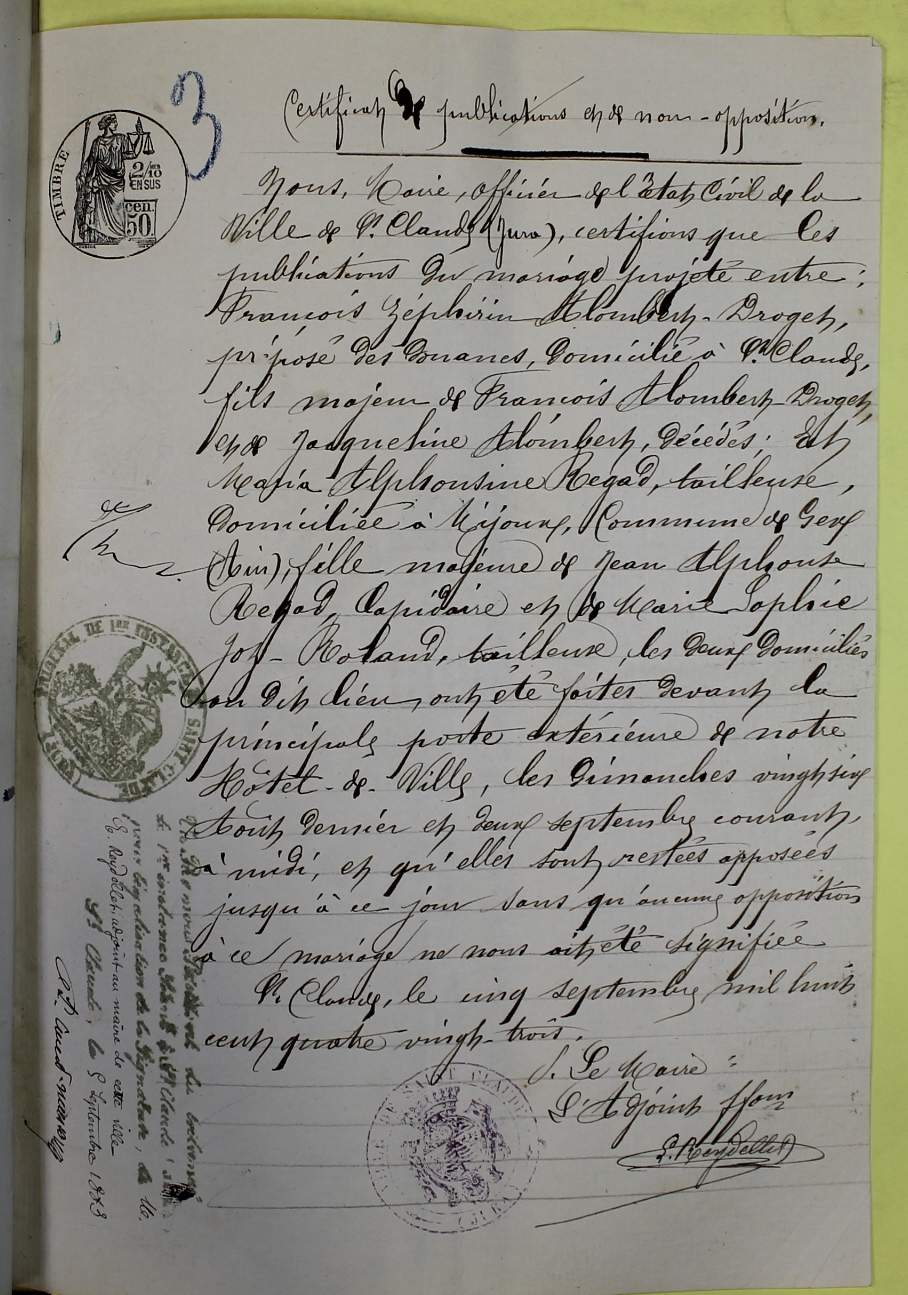 3
TIMBRE
2/10
EN SUS
50 cen
Certificat de publications et de non-opposition.
Nous, Maire, officier de l'Etat Civil de la
Ville de St Claude (Jura), certifions que les
publications du mariage projeté entre :
François Zéphirin Alombert-Droget,
préposé des douanes, domicilié à St Claude,
fils majeur de François Alombert-Droget,
et de Jacqueline Alombert, décédés ; Et
Maria Alphonsine Regad, tailleuse,
domiciliée à Mijoux, Commune de Gex
(Ain), fille majeure de Jean Alphonse
Regad, lapidaire et de Marie Sophie
Joz-Roland, tailleuse, les deux domiciliés
au dit lieu, ont été faites devant la
principale porte extérieure de notre
Hôtel-de-Ville, les dimanches vingt six
Août dernier et deux septembre courant,
à midi, et qu'elles sont restées apposées
jusqu'à ce jour sans qu'aucune opposition
à ce mariage ne nous ait été signifiée
St Claude, le cinq septembre mil huit
cent quatre vingt-trois.
Le Maire :
L'Adjoint ffons
P. Reydellet
VILLE DE SAINT CLAUDE
(JURA)
TRIBUNAL DE 1ère INSTANCE SAINT-CLAUDE
(JURA)
du tribunal
de 1ère instance de St Claude
pour légalisation de la signature de M.
Reydellet, adjoint au maire de cette ville
St Claude, le 5 Septembre 1883